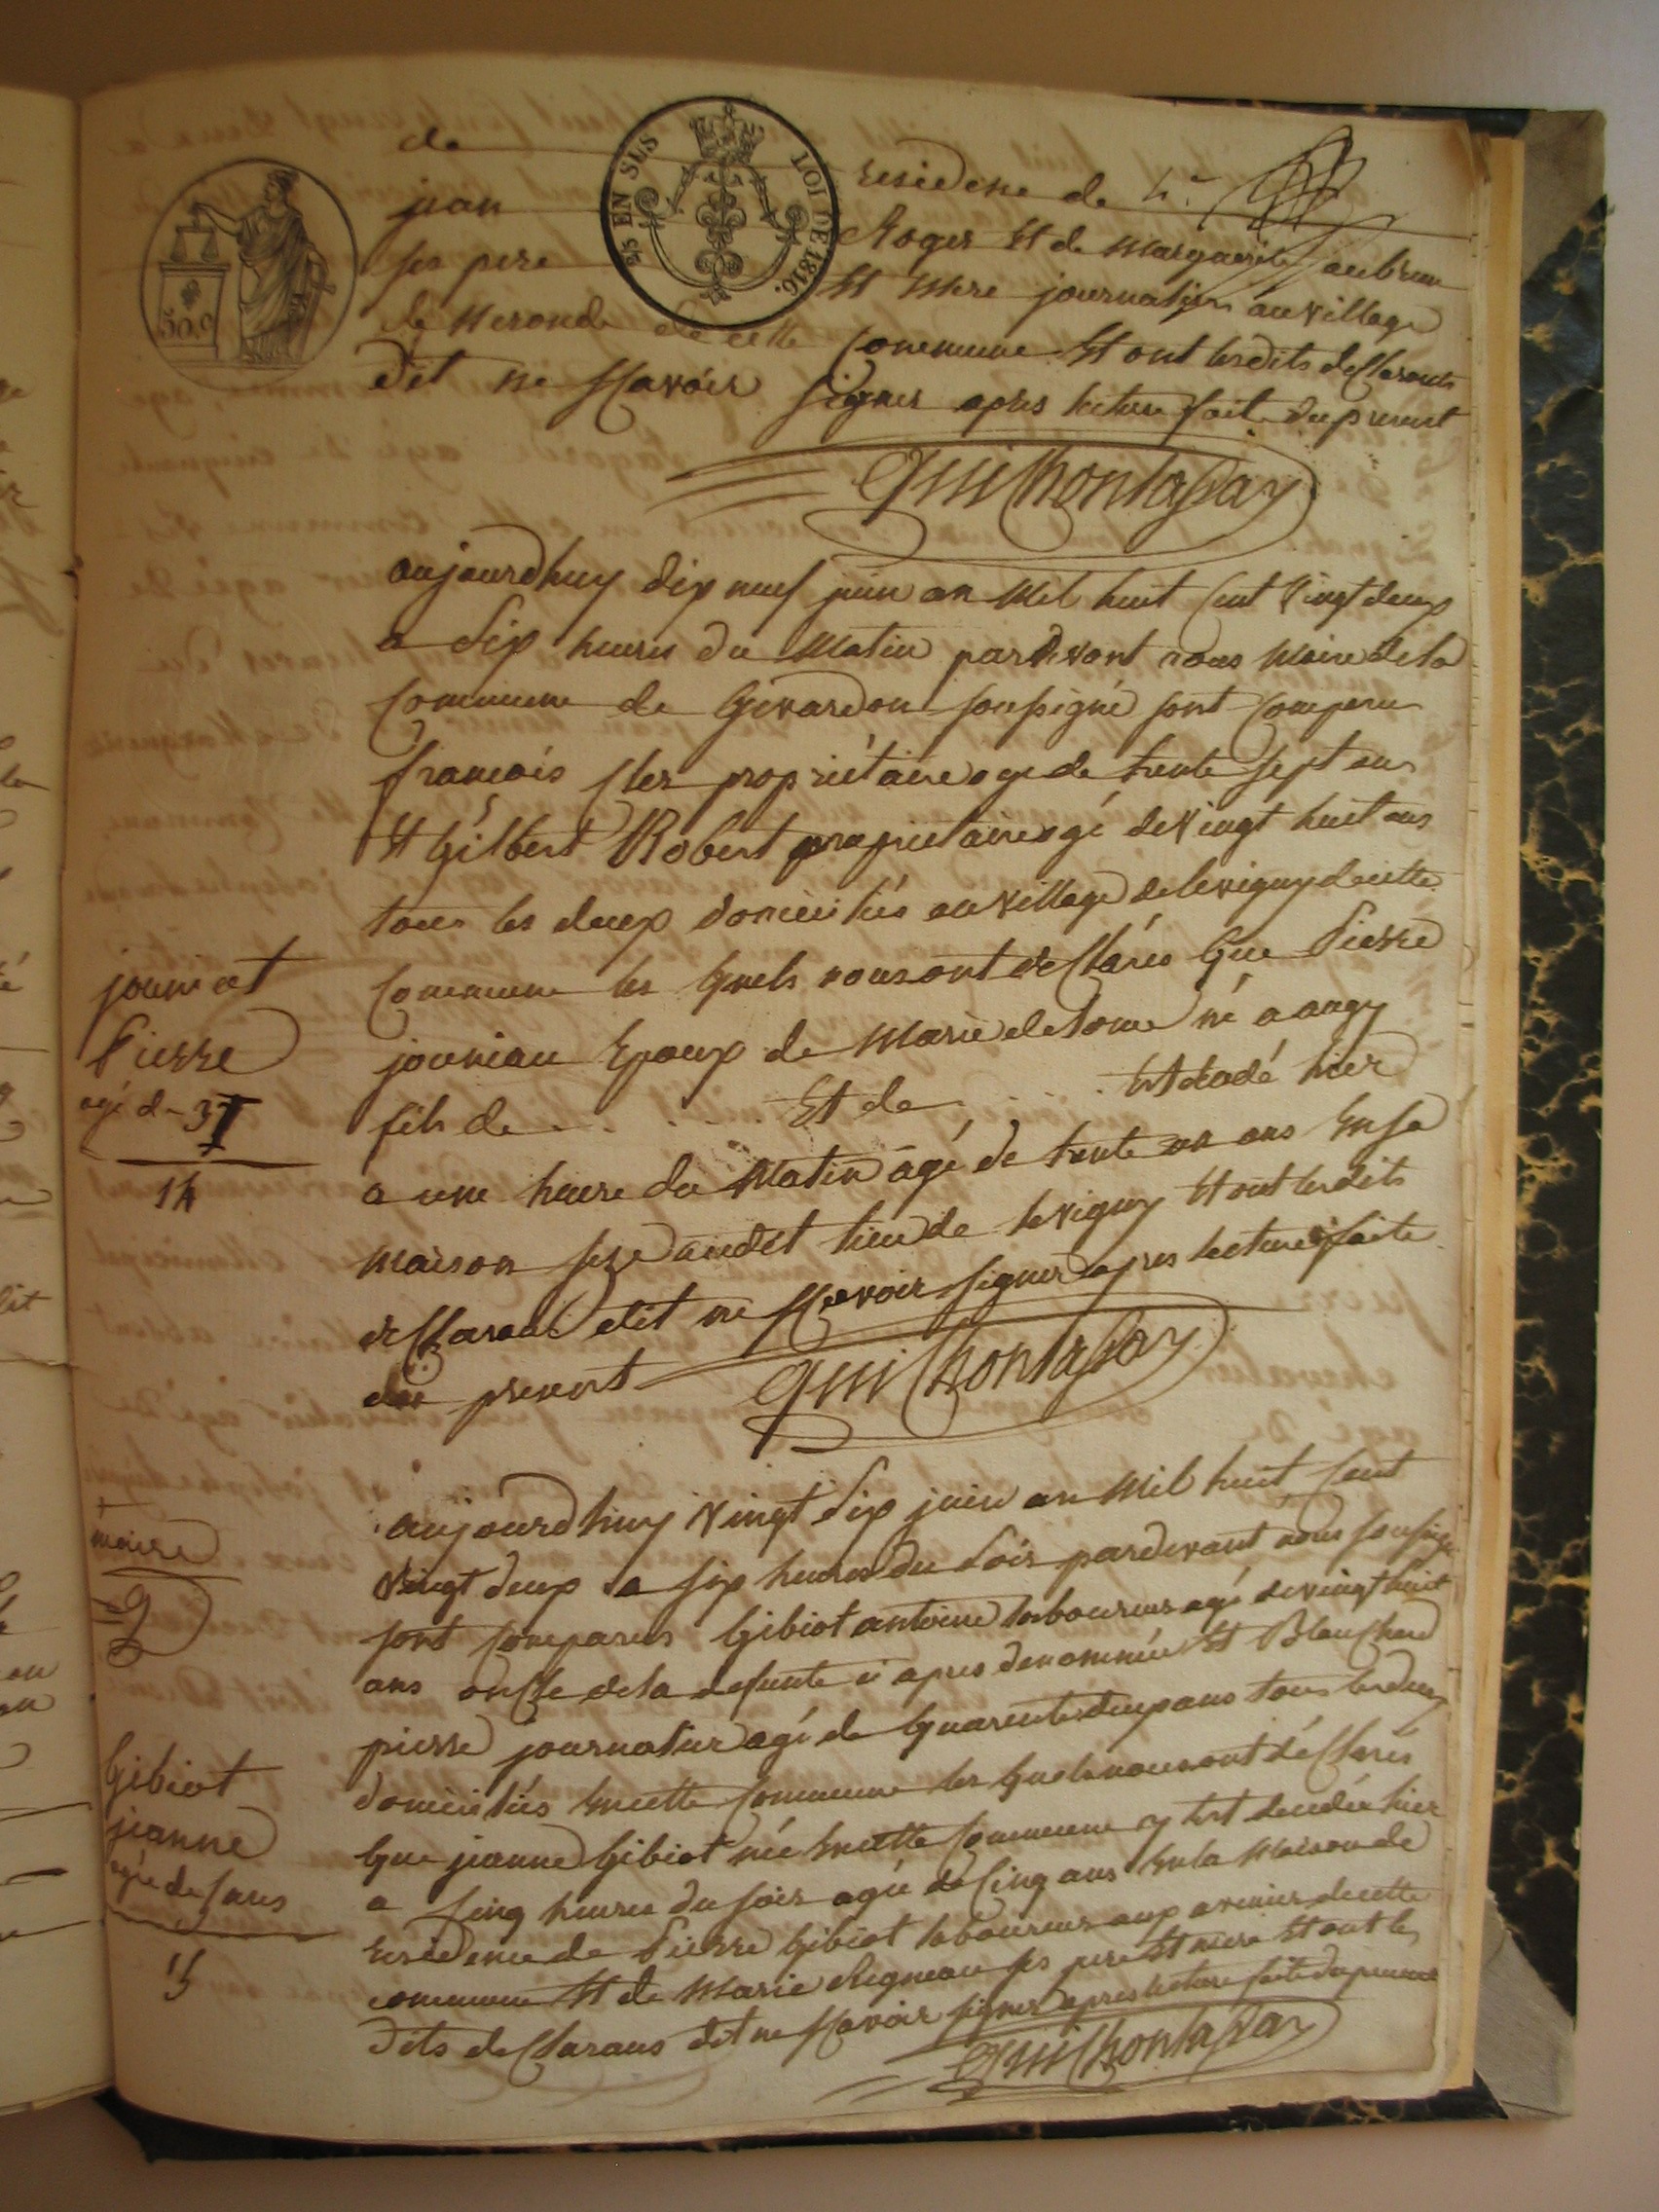 ES EN SES
LOI DE 1816.
50.c
de residence de
jean Roger Et de marguerite aubrun
ses pere Et Mere journalier au village
de Neronde de cette Commune Et ont lesdits desclarants
dit ne scavoir signer apres lecture fait du present
Guilhontasay
aujourdhuy dix neuf juin an Mil huit Cent Vingt deux
a dix heures du Matin pardevant nous Maire de la
Commune de Givardon soussigné sont Comparus
françois propriétaire age de trente sept ans
Et Gilbert Robert propriétaire agé de Vingt huit ans
tous les deux domiciliés au village de levigny de cette
Commune les quels nous ont desclarés que Pierre
jouniau Epoux de Marie né a augy
fils de . . . . . Et de . . . Est decadé hier
a une heure du Matin agé de trente un ans En sa
Maison size au dit lieu de levigny Et ont lesdits
desclarants dit ne scavoir signer apres lecture faite
du present
jouniat
Pierre
agé de 37
14
aujourdhuy Vingt dix juin an Mil huit Cent
Vingt deux a six heures du soir pardevant nous soussigné
sont Comparus Gibiot antoine laboureur agé de vingt huit
ans oncle de la defunte ci apres denommée Et Blanchard
pierre journalier agé de quarente deux ans tous les deux
domiciliés En cette Commune les quels nous ont désclarés
que jeanne Gibiot née En cette Commune y Est decedée hier
a Cinq heures du soir agée de Cinq ans En la Maison de
residence de Pierre Gibiot laboureur aux de cette
commune Et de Marie ses pere Et mere Et ont les
dits desclarans dit ne scavoir signer apres lecture faite du present
maire
Gibiot
jeanne
agée de 5 ans
15